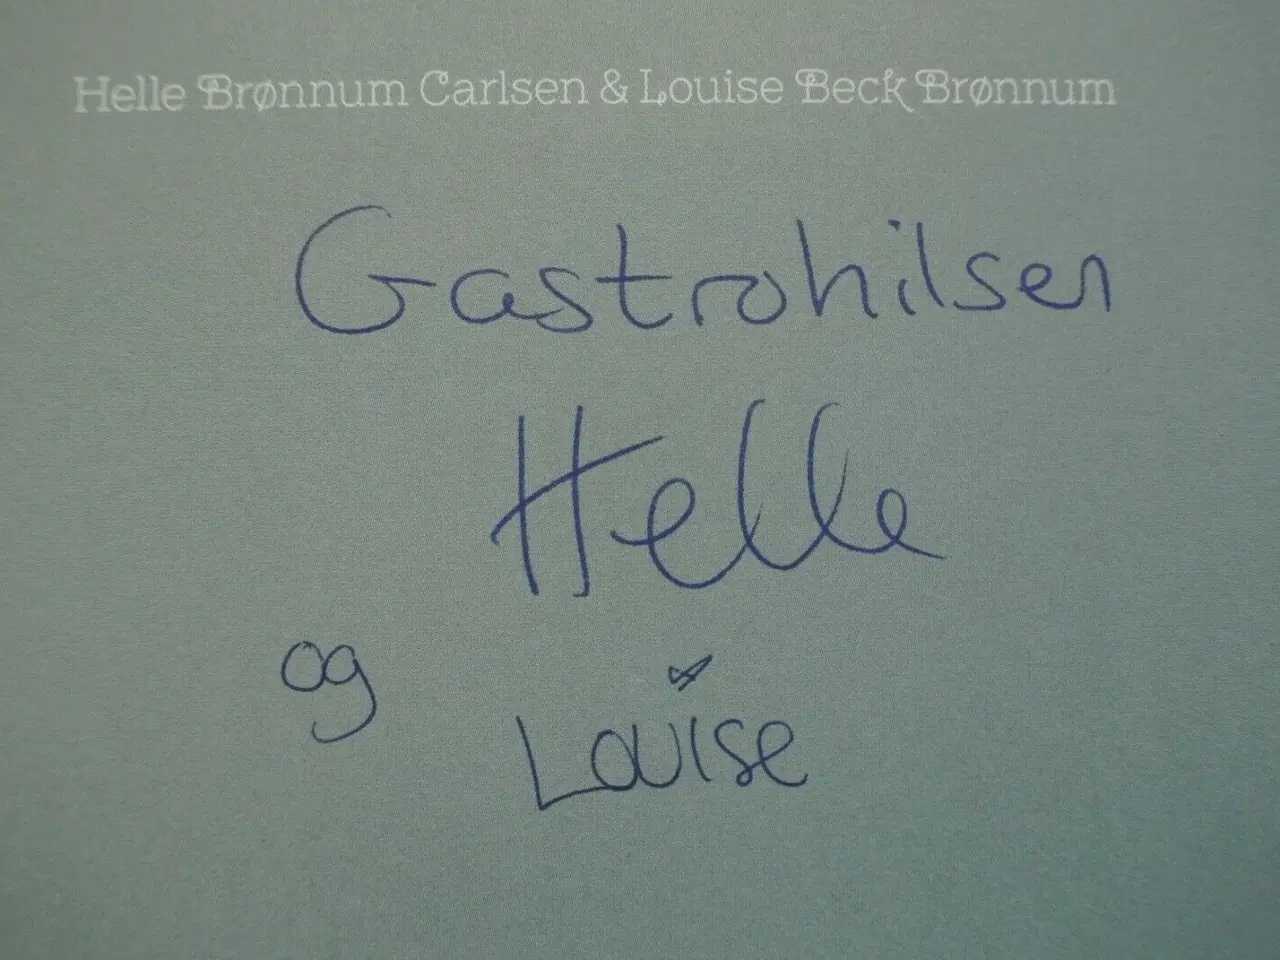 Helle Brønnum Carlsen & Louise Beck Brønnum
Gastrohilsen
Helle
og
Louise